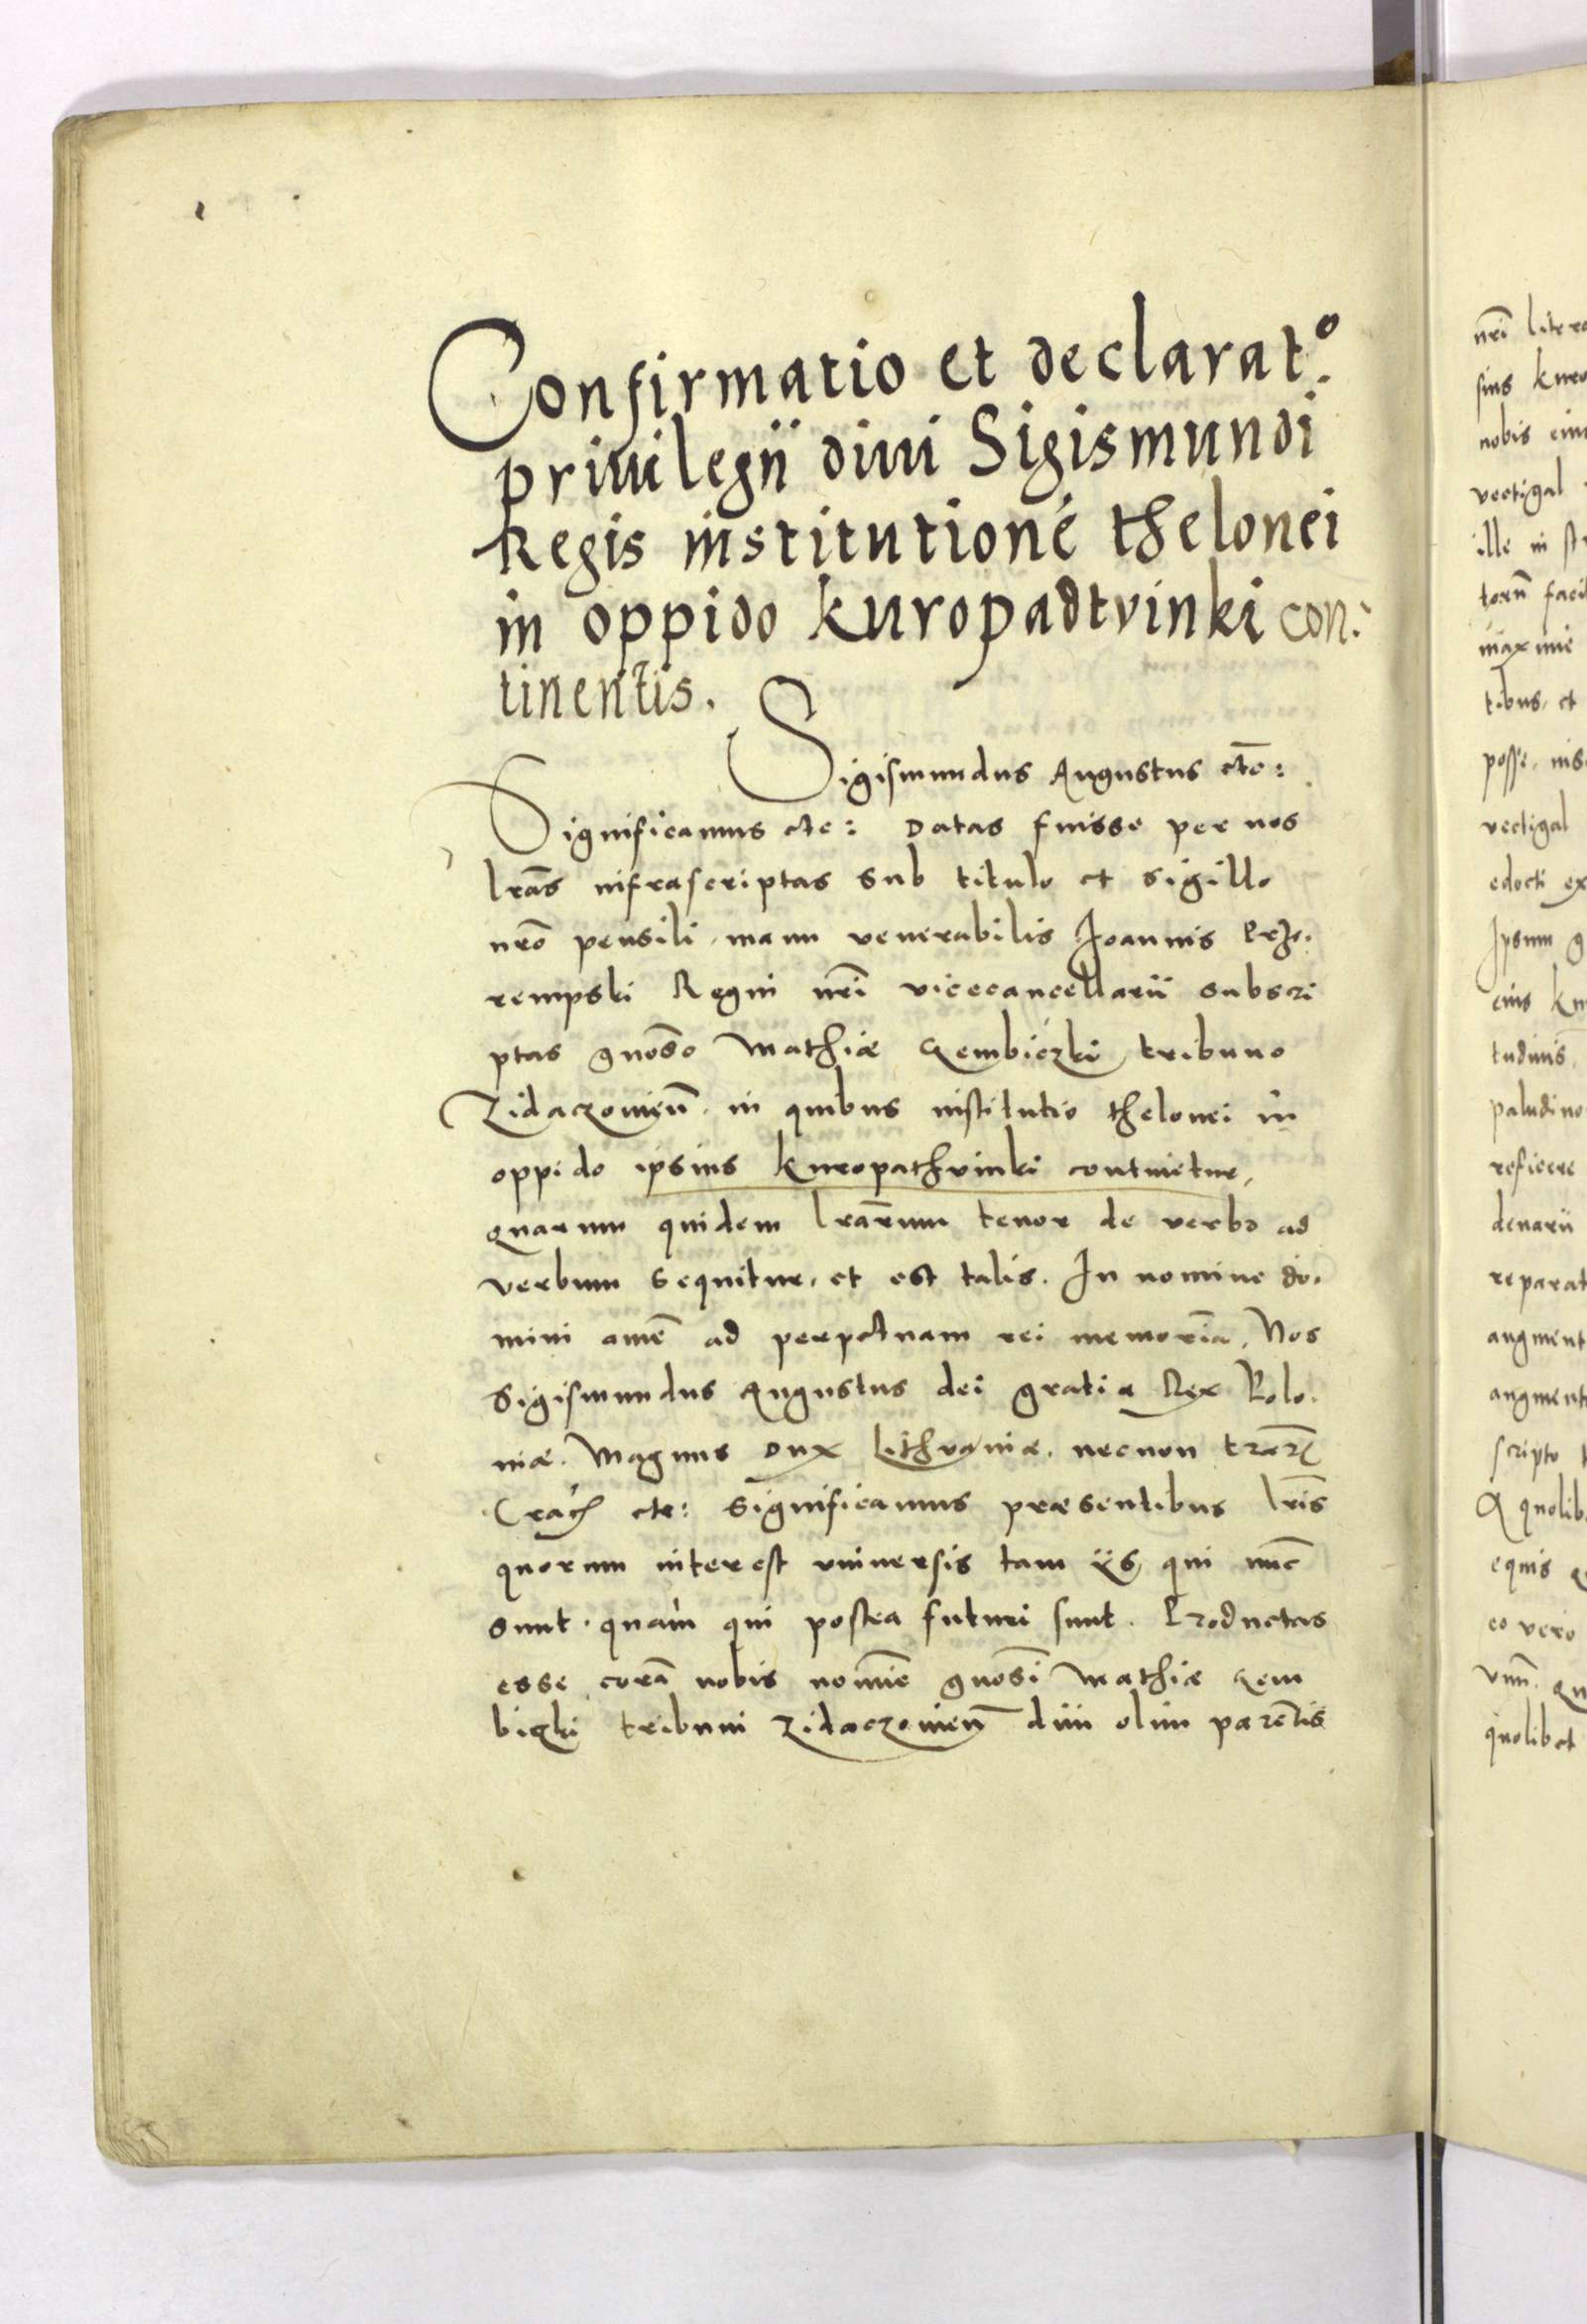 Confirmatio et declarat.º
priuilegii diui Sigismundi
Regis institutionē thelonei
in oppido kuropadtvinki con:
tinentis.
Sigismundus Augustus etc:
Significamus etc: Datas fuisse per nos
lrās infrascriptas sub titulo et sigillo
nrō pensili, manu venerabilis Joannis Prze.
rempski Regni nrī vicecancellarii subscri
ptas gnōso Mathiæ Zembiczki tribuno
Zidaczouieñ. in quibus institutio thelonei in
oppido ipsius kuropathvinki continetur,
quarum quidem lrārum tenor de verbo ad
verbum sequitur, et est talis. In nomine do.
mini amē ad perpetuam rei memoriā. Nos
Sigismundus Augustus dei gratia Rex Polo.
niæ. Magnus Dux Lithvaniæ. necnon trarʒ
Crac etc: Significamus præsentibus lrīs
quorum interest vniuersis tam iis qui nūc
sunt. quam qui postea futuri sunt. Productas
esse corā nobis nomīe gnōsi Mathiæ Zem
biczki tribuni Zidaczouieñ diui olim parentis
nrī litera
sius kuro
nobis
vectigal
ille in
torū facil
maxime
tibus, et
posse, nis
vectigal
edocti ex
Ipsum g
eius ku
tudinis
paludino
reficere
denarii
reparat
augment
augment
scripto
A quolib
equis
eo vero
vnū. Qu
quolibet